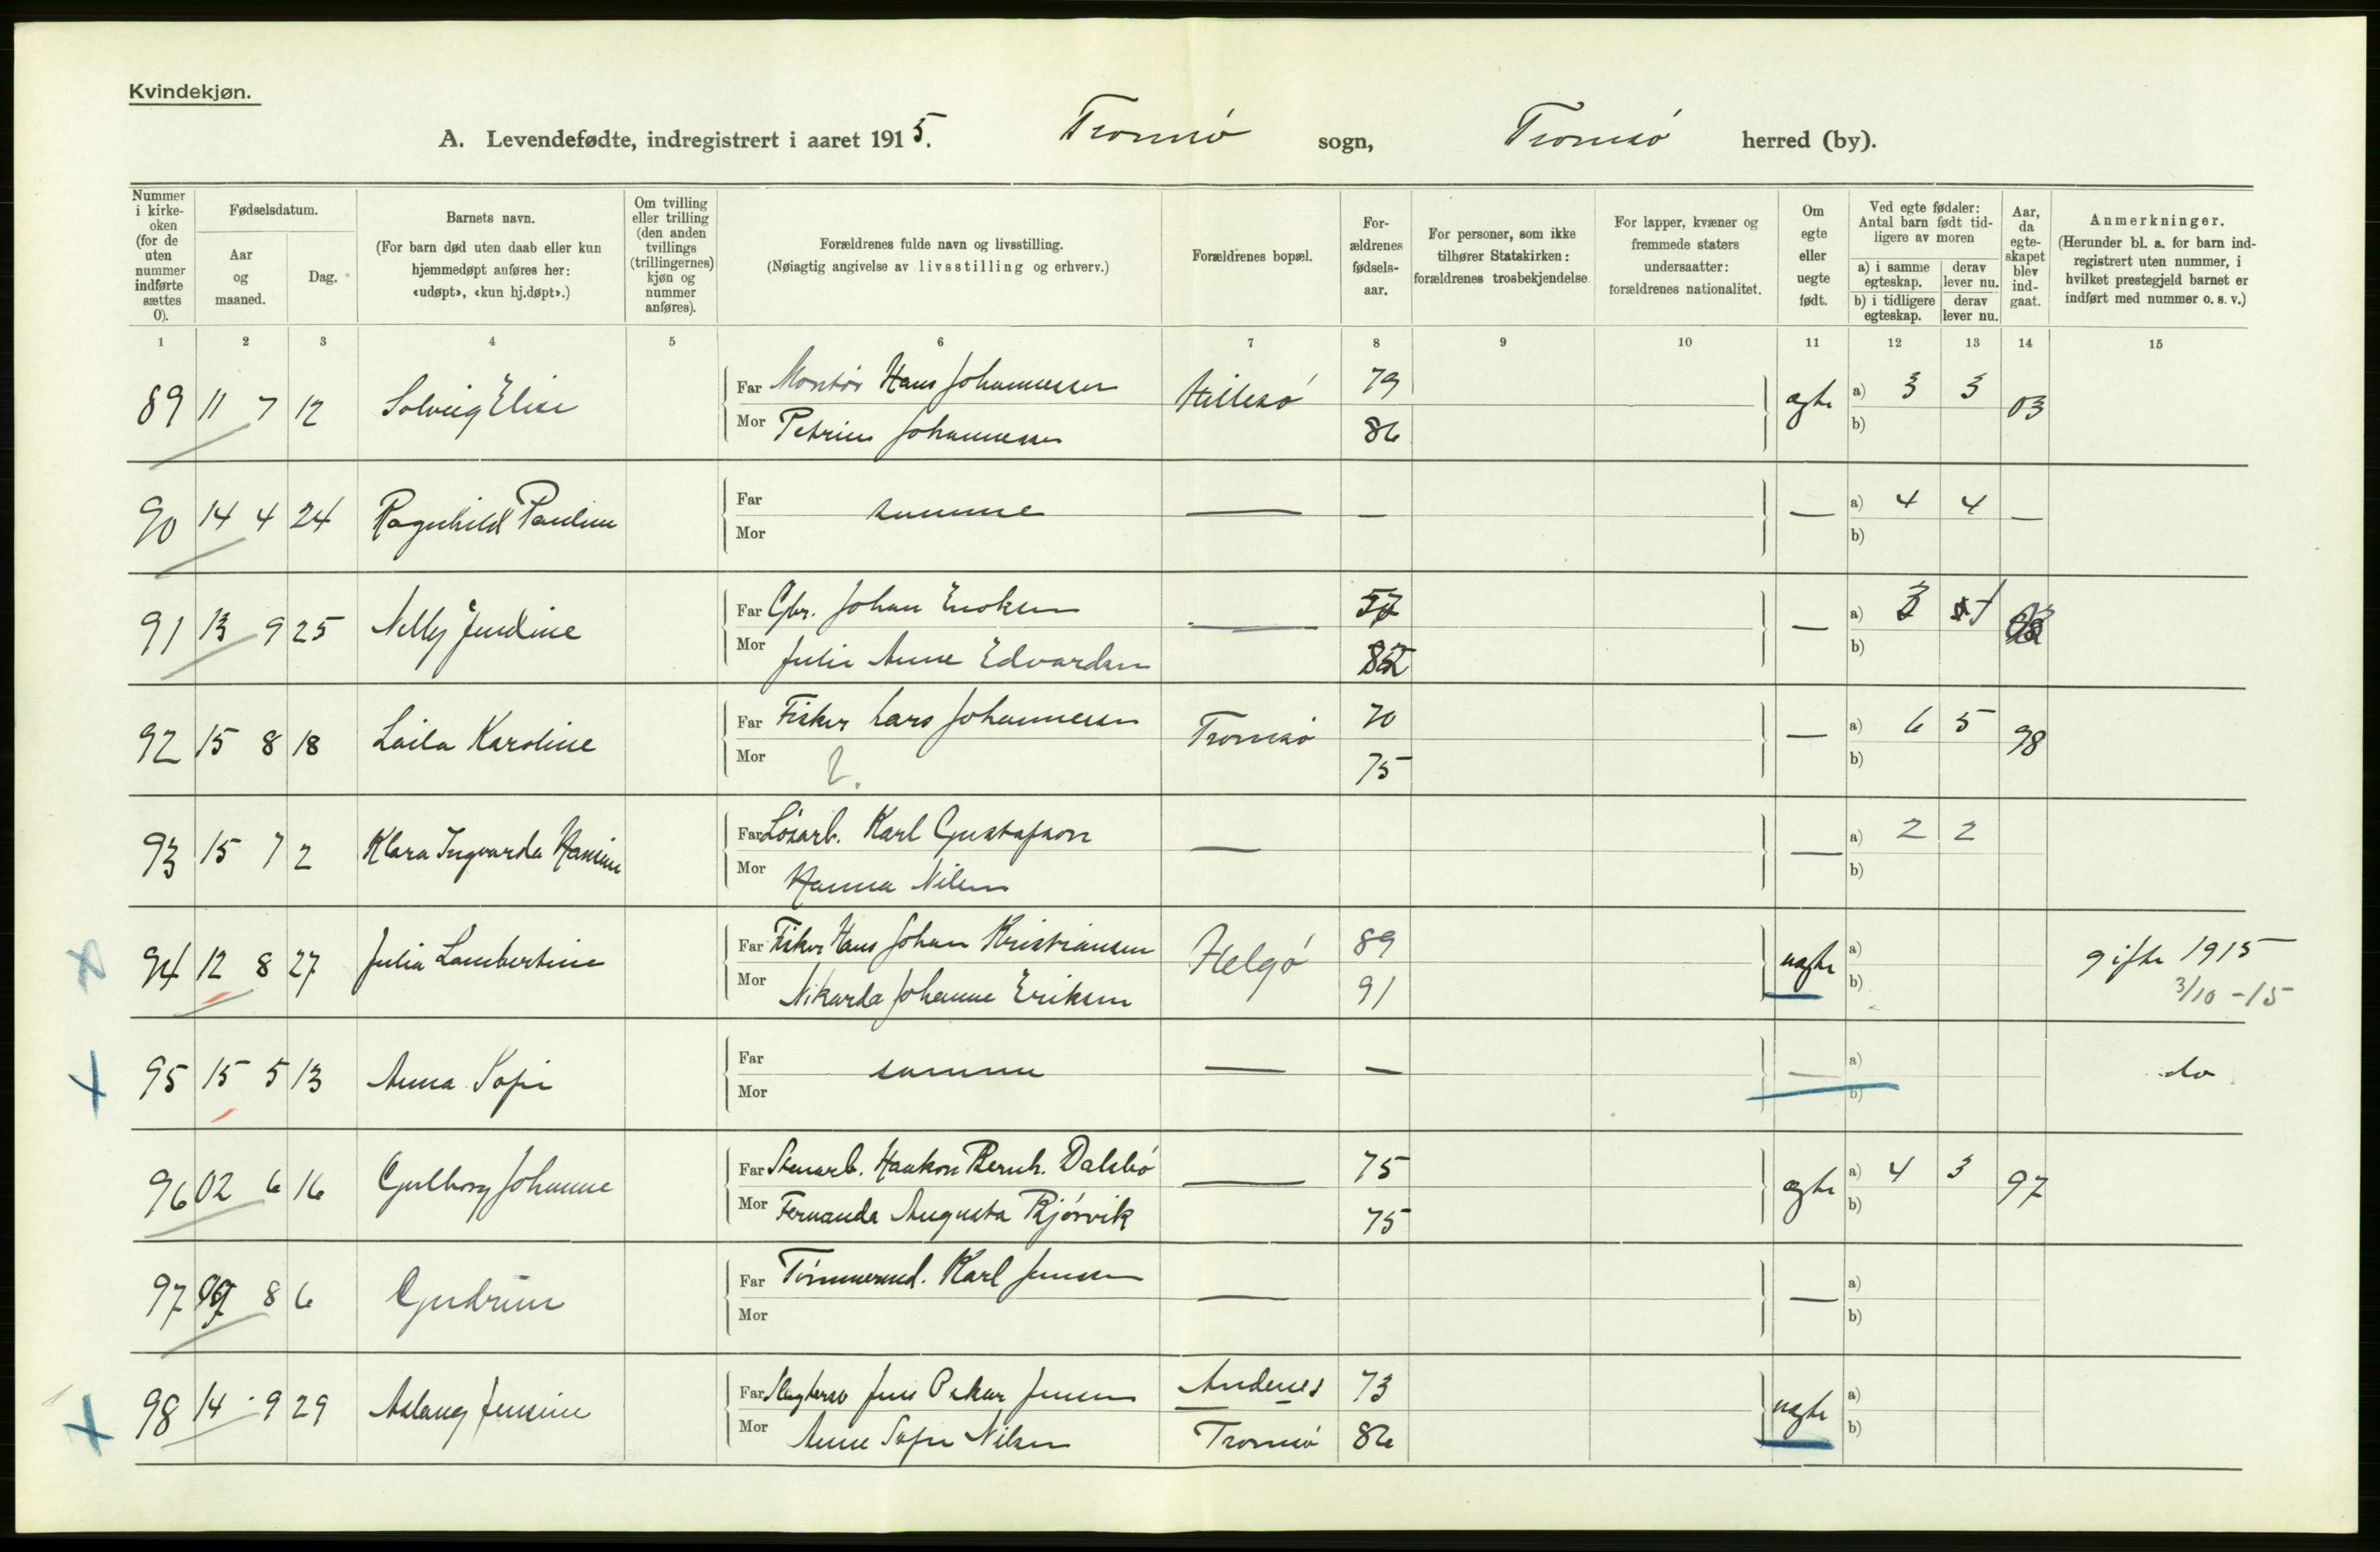 Kvindekjøn.
A. Levendefødte, indregistrert i aaret 1915. Tromsø sogn, Tromsø herred (by).
Nummer i kirkeoken (for de uten nummer indførte sættes 0).
Fødselsdatum.
Aar og maaned.
Dag.
Barnets navn.
(For barn død uten daab eller kun hjemmedøpt anføres her: «udøpt», «kun hj.døpt».)
Om tvilling eller trilling (den anden tvillings (trillingernes) kjøn og nummer anføres).
Forældrenes fulde navn og livsstilling.
(Nøiagtig angivelse av livsstilling og erhverv.)
Forældrenes bopæl.
For-ældrenes fødsels-aar.
For personer, som ikke tilhører Statskirken: forældrenes trosbekjendelse
For lapper, kvæner og fremmede staters undersaatter: forældrenes nationalitet.
Om egte eller uegte født.
Ved egte fødsler: Antal barn født tid-ligere av moren
a) i samme egteskap.
derav lever nu.
b) i tidligere egteskap.
derav lever nu.
Aar, da egte-skapet blev ind-gaat.
Anmerkninger.
(Herunder bl. a. for barn ind-registrert uten nummer, i hvilket prestegjeld barnet er indført med nummer o. s. v.)
1 2 3 4 5 6 7 8 9 10 11 12 13 14 15
89 11 7 12 Solveig Elise Far Montør Hans Johannessen Hillesø 79 ægte a) 3 3 03
Mor Petrine Johannessen 86 b)
90 14 4 24 Ragnhild Pauline Far samme — — — a) 4 4 —
Mor b)
91 13 9 25 Nelly Jendine Far Gbr. Johan Enoksen — 57 — a) 3
Mor Julie Anne Edvardsen b)
92 15 8 18 Laila Karoline Far Fisker Lars Johannessen Tromsø 70 — a) 6 5 98
Mor ?. 75 b)
93 15 7 2 Klara Ingvarda Hansine Far Løsarb. Karl Gustafson — — a) 2 2
Mor Hanna Nilsen b)
94 12 8 27 Julia Lambertine Far Fisker Hans Johan Kristiansen Helgø 89 uægte a) gifte 1915
Mor Nikarda Johanne Eriksen 91 b) 3/10 - 15
95 15 5 13 Anna Sofie Far samme — — — a) do
Mor b)
96 02 6 16 Gulborg Johanne Far Stenarb. Haakon Bernh. Dalsbø — 75 ægte a) 4 3 97
Mor Fernanda Augusta Bjørvik 75 b)
97 8 6 Gudrun Far Tømmermd. Karl Jensen — — a)
Mor b)
98 14 9 29 Aslaug Jensine Far Jens Oskar Jensen Andenes 73 uægte a)
Mor Anne Sofie Nilsen Tromsø 86 b)